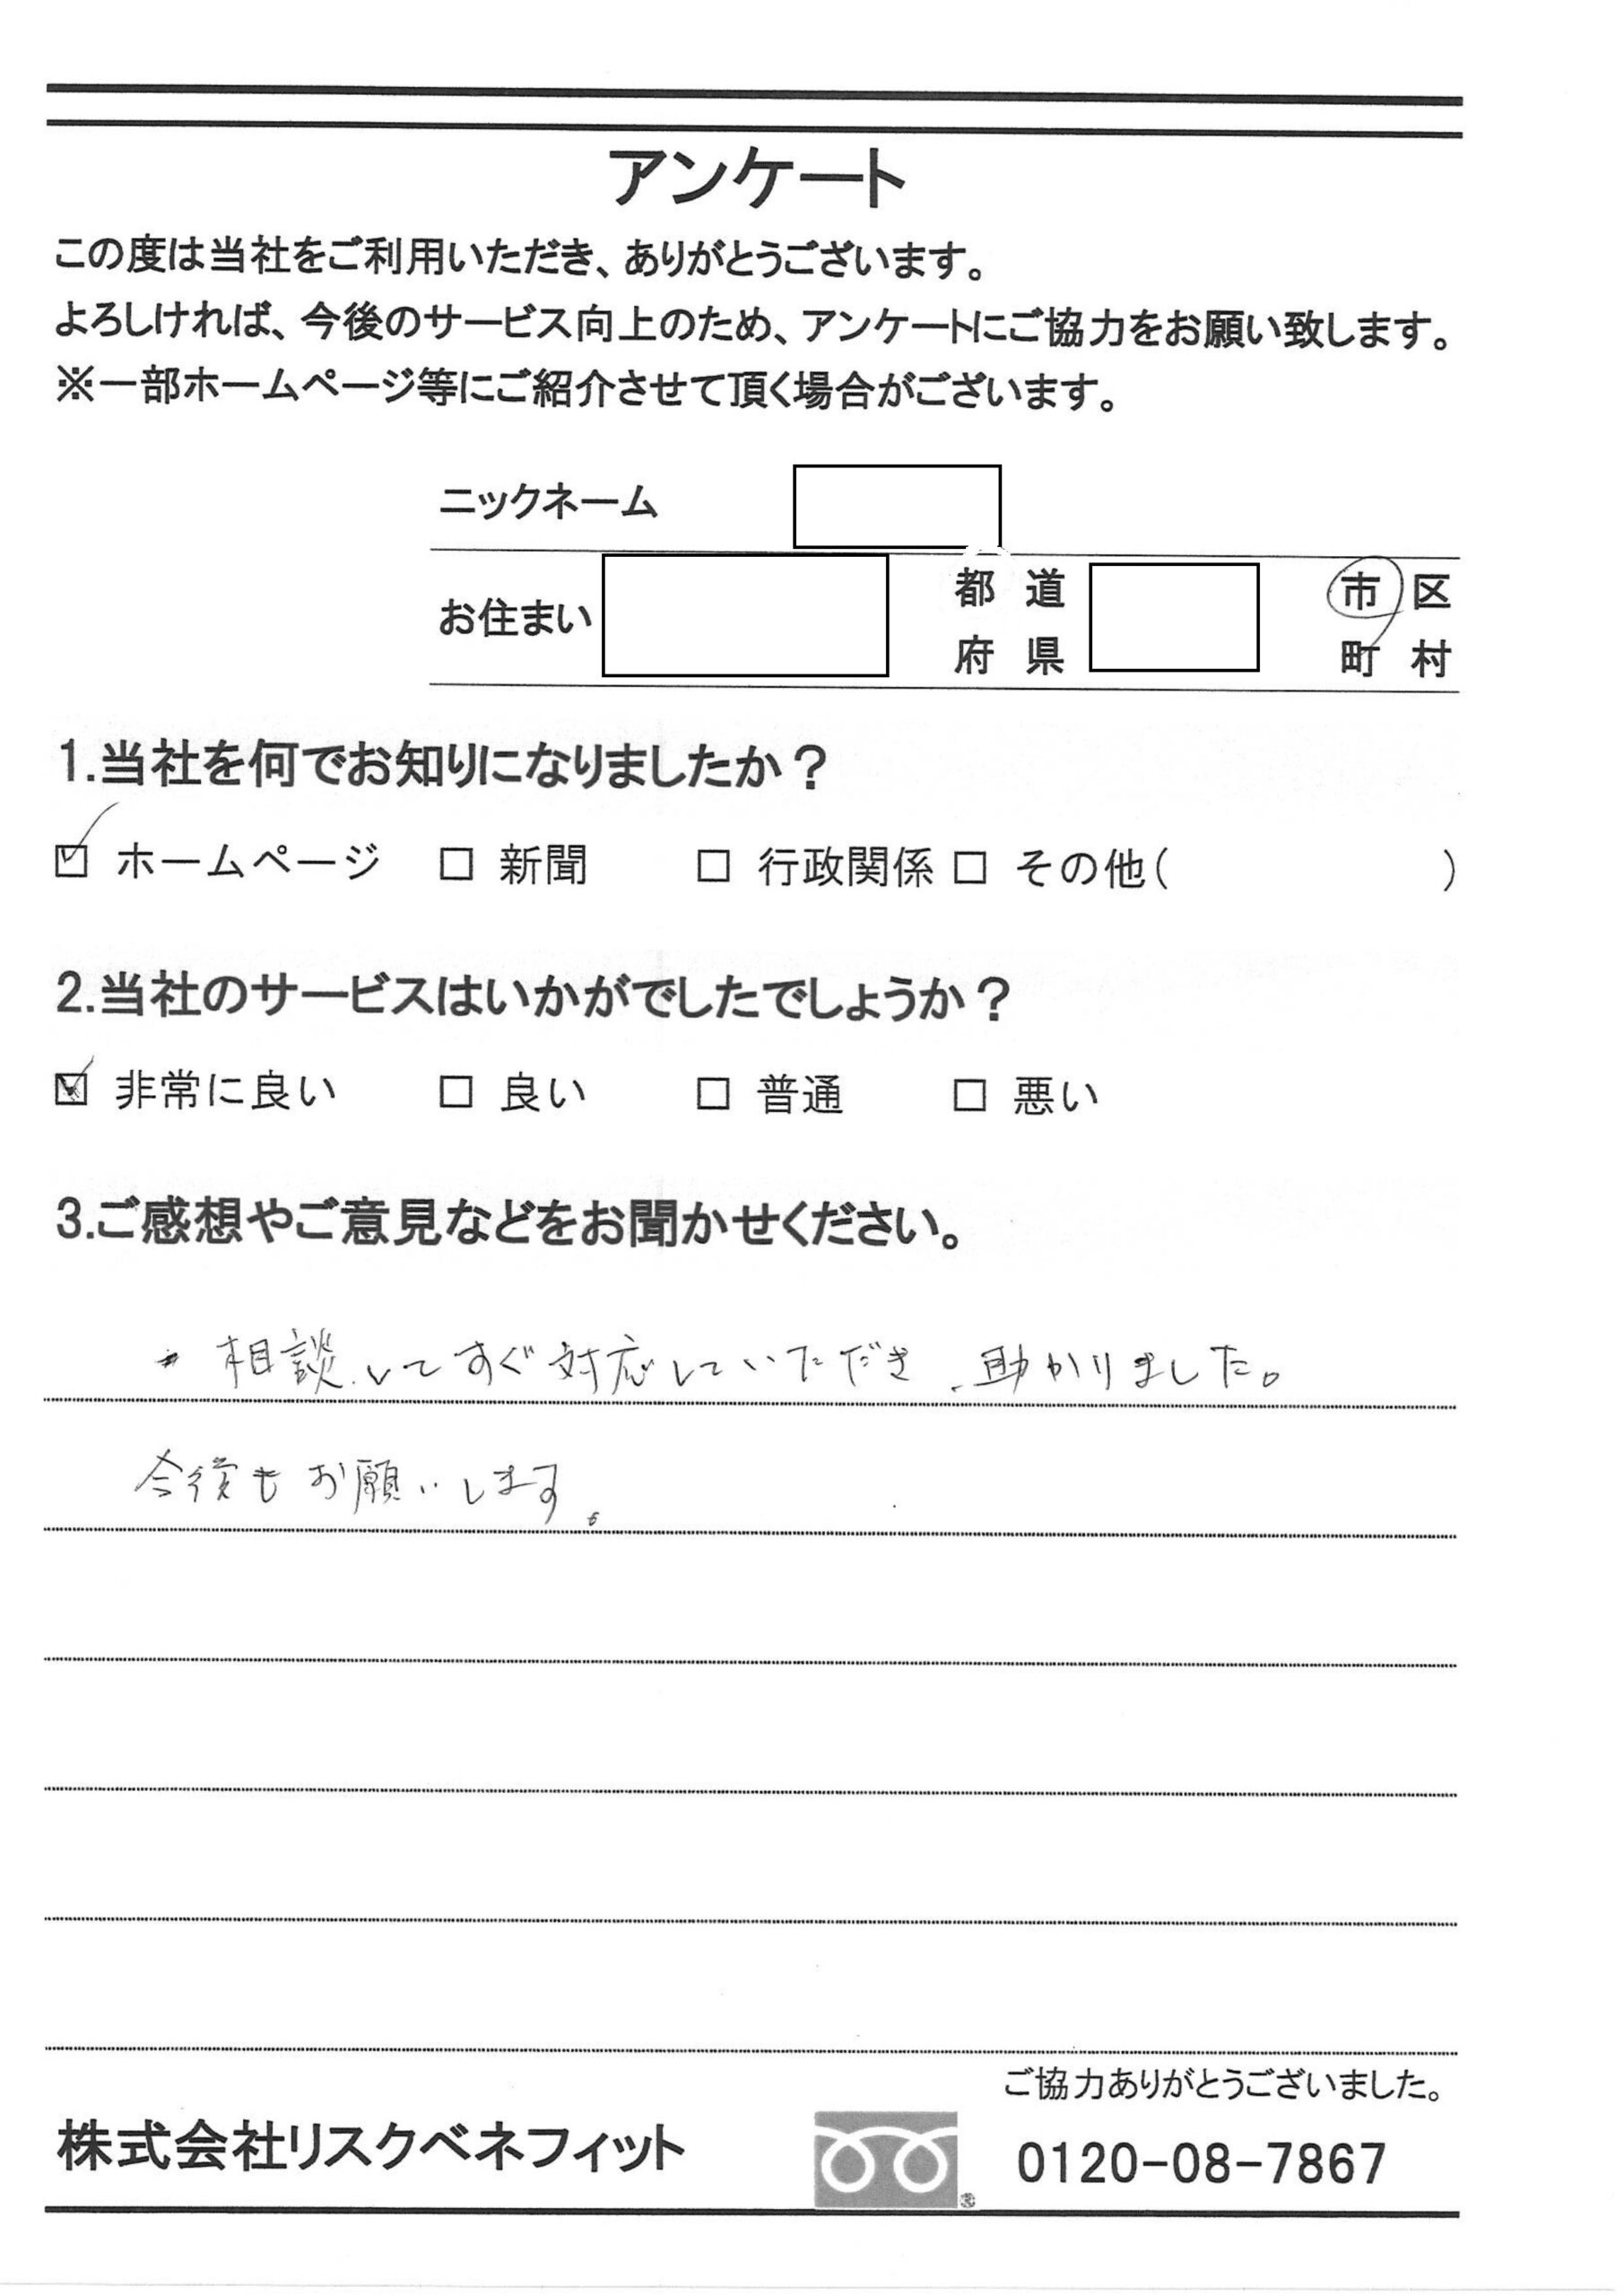 アンケート
この度は当社をご利用いただき、ありがとうございます。
よろしければ、今後のサービス向上のため、アンケートにご協力をお願い致します。
※一部ホームページ等にご紹介させて頂く場合がございます。
ニックネーム
お住まい 都 道 市 区
府 県 町 村
1.当社を何でお知りになりましたか？
☑ ホームページ □ 新聞 □ 行政関係 □ その他( )
2.当社のサービスはいかがでしたでしょうか？
☑ 非常に良い □ 良い □ 普通 □ 悪い
3.ご感想やご意見などをお聞かせください。
・相談してすぐ対応していただき、助かりました。
今後もお願いします。
ご協力ありがとうございました。
株式会社リスクベネフィット 0120-08-7867